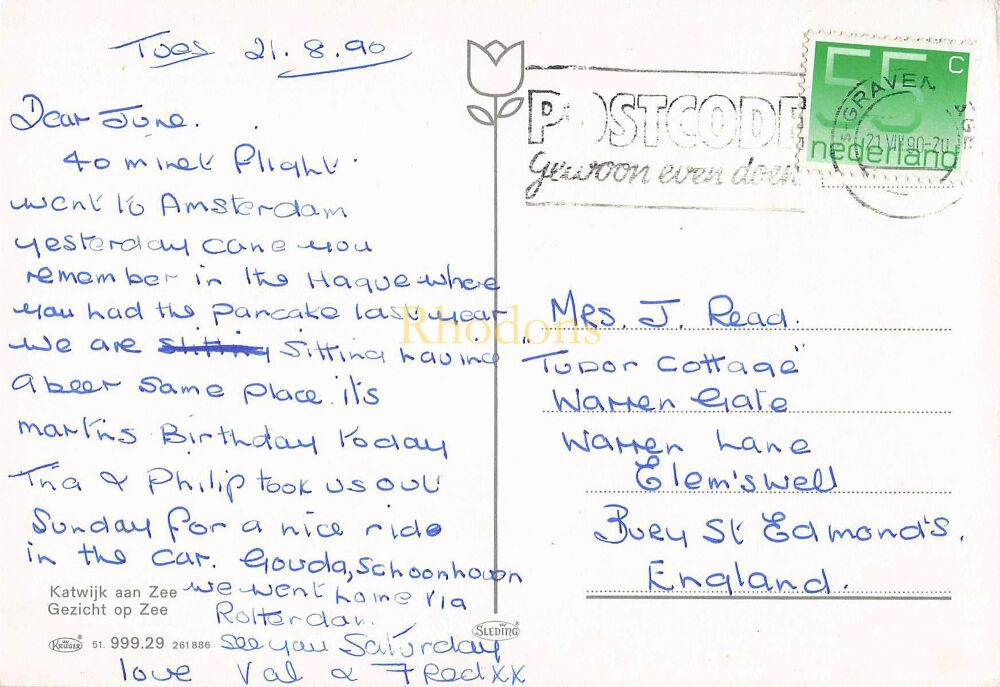 Tues 21.8.90
Dear June.
40 minet Flight.
went to Amsterdam
yesterday cane you
remember in the Hague where
you had the pancake last year
we are sitting having
a beer same place. it's
martins Birthday today
Tina & Philip took us out
Sunday for a nice ride
in the car. Gouda, Schoonhoven
we went home via
Rotterdam.
see you Saturday
love Val & Fred xx
Katwijk aan Zee
Gezicht op Zee
KRUGER 51. 999.29 261886
SLEDING
POSTCODE
Gewoon even doen
55 c
nederland
21 VIII 90-20
Rhodons
Mrs. J. Read.
"Tudor Cottage"
Warren Gate
Warren Lane
Elem'swell
Bury St Edmond's.
England.